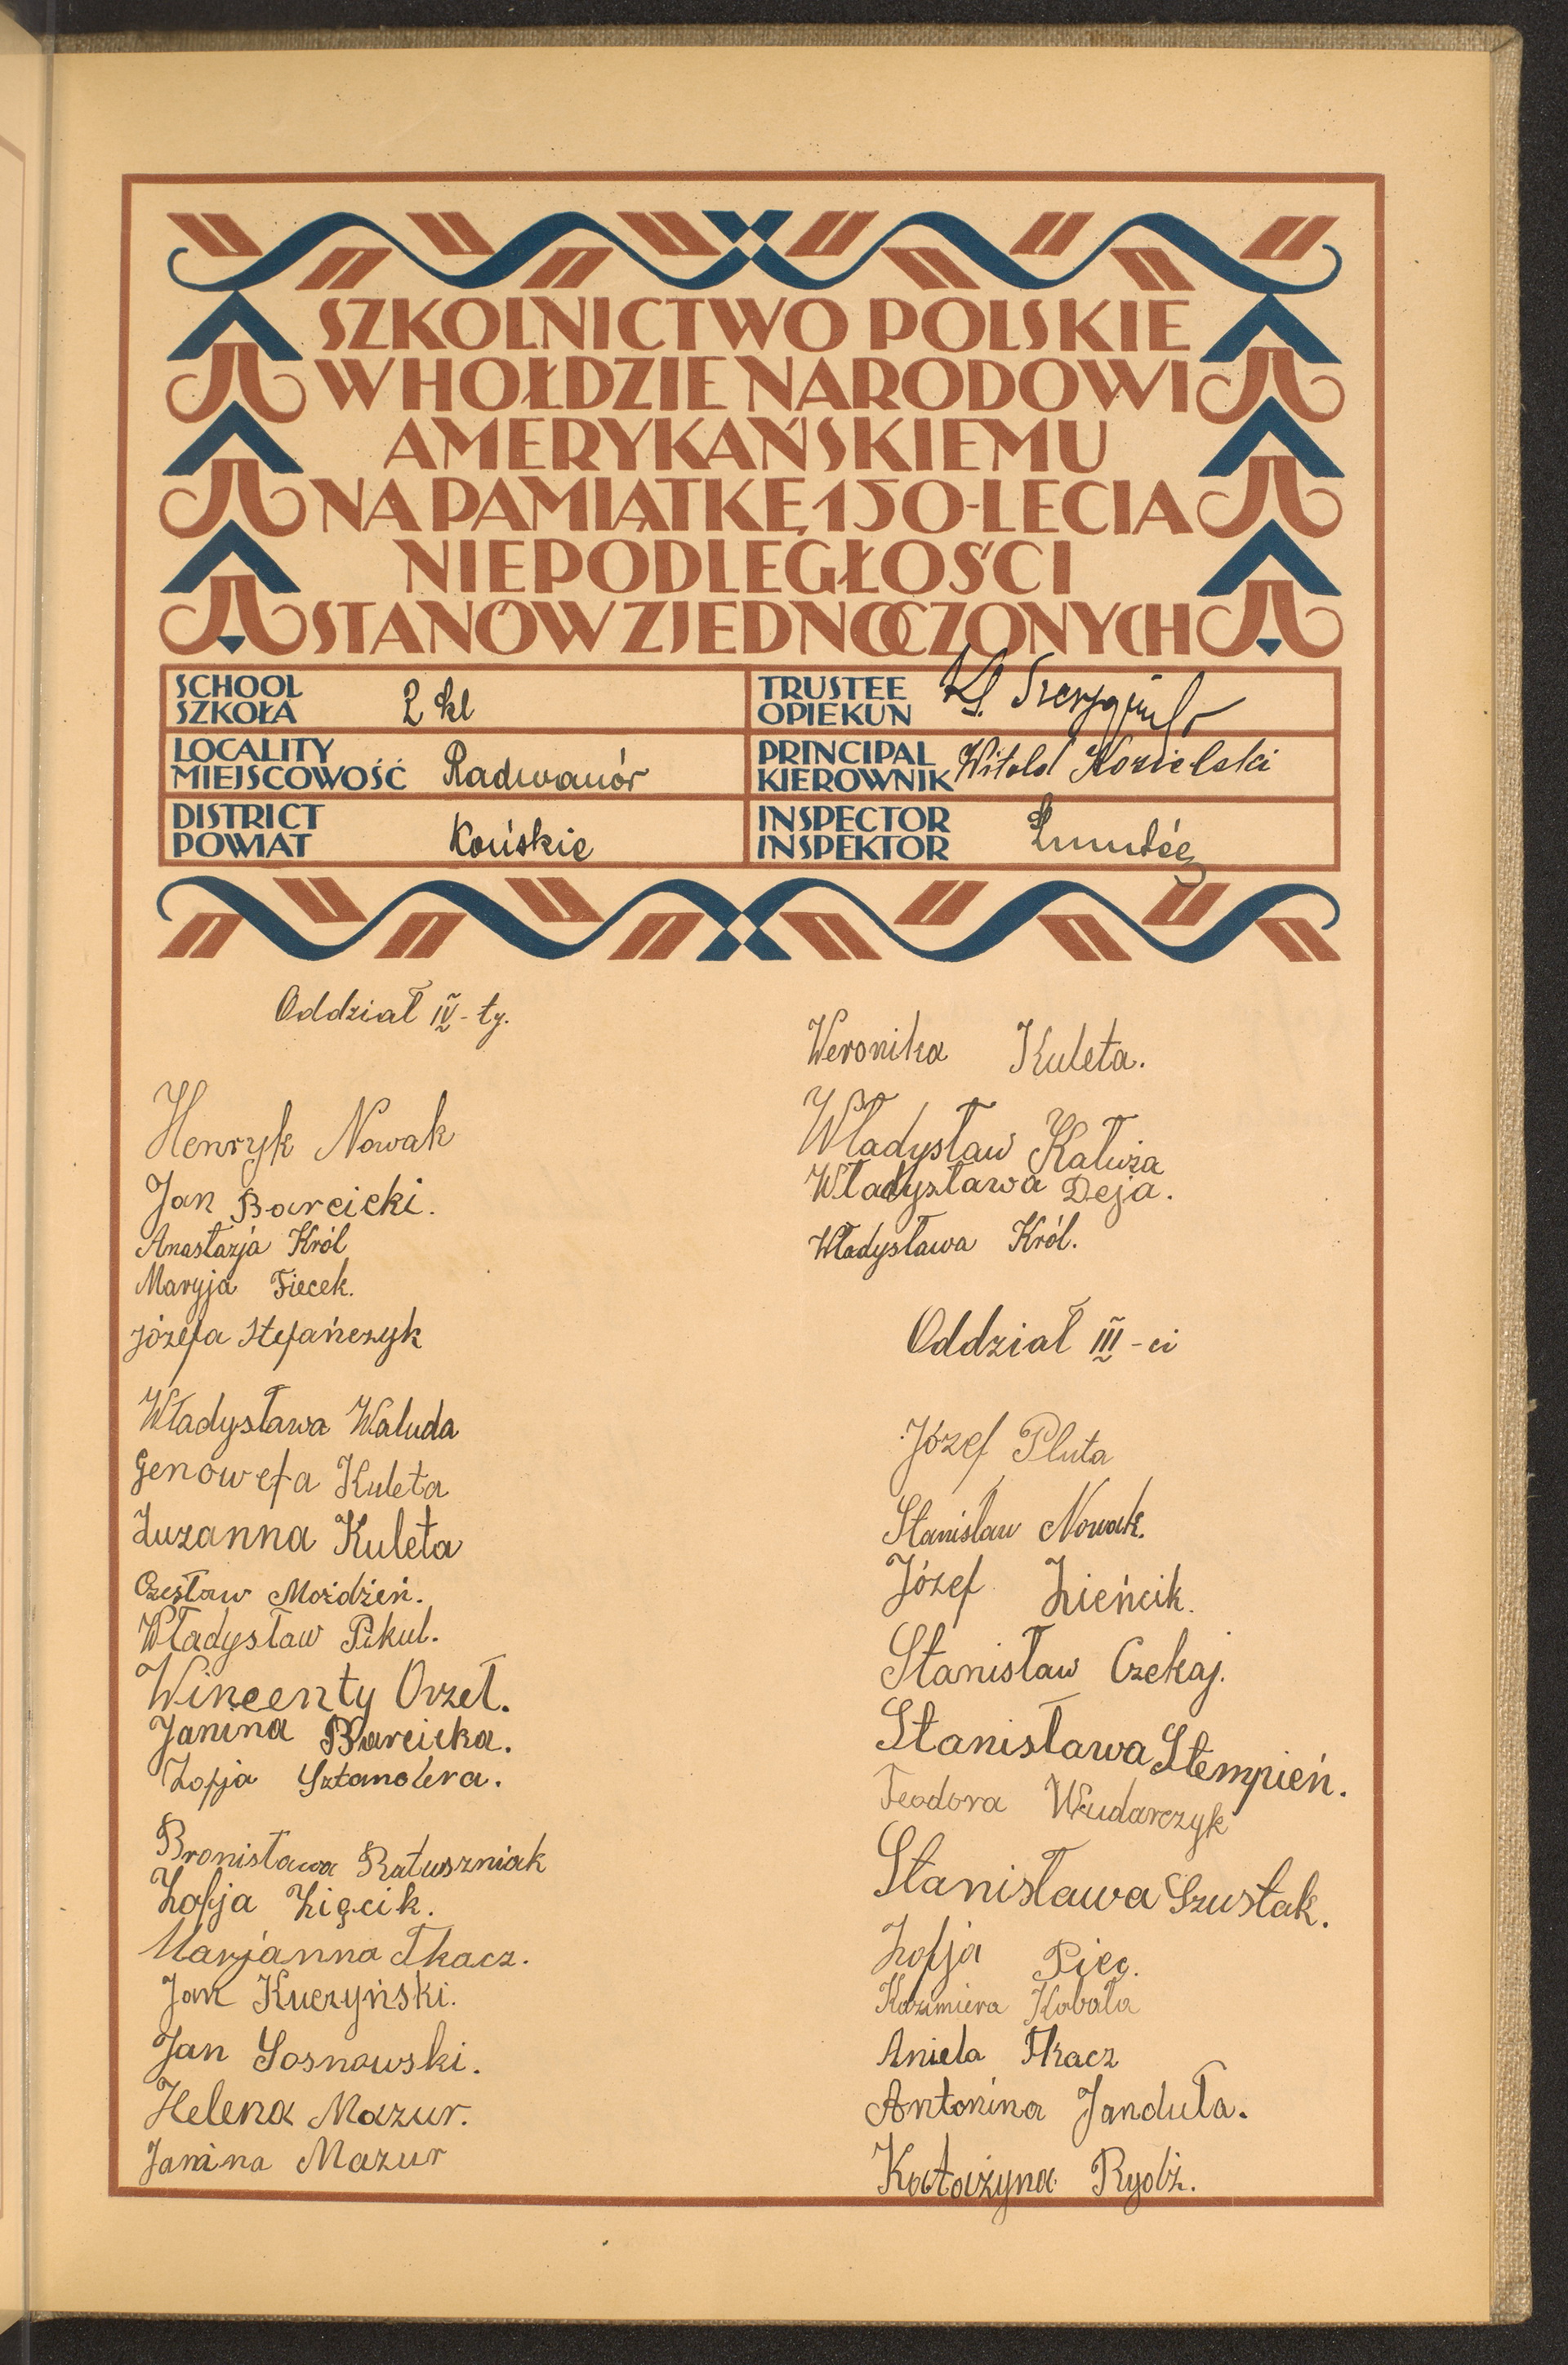 SZKOLNICTWO POLSKIE
W HOŁDZIE NARODOWI
AMERYKAŃSKIEMU
NA PAMIĄTKĘ 150-LECIA
NIEPODLEGŁOŚCI
STANÓW ZJEDNOCZONYCH
SCHOOL
SZKOŁA
2 kl
LOCALITY
MIEJSCOWOŚĆ
Radwanów
DISTRICT
POWIAT
Końskie
TRUSTEE
OPIEKUN
PRINCIPAL
KIEROWNIK
Witold Kozielski
INSPECTOR
INSPEKTOR
Oddział IV-ty.
Henryk Nowak
Jan Barcicki.
Anastazja Król
Maryja Fiecek.
Józefa Stefańczyk
Władysława Waluda
Genowefa Kuleta
Zuzanna Kuleta
Czesław Moździeń.
Władysław Pikul.
Wincenty Orzeł.
Janina Barcicka.
Zofja Sztandera.
Bronisława Ratuszniak
Zofja Zięcik.
Marjanna Tkacz.
Jan Kuczyński.
Jan Sosnowski.
Helena Mazur.
Janina Mazur
Weronika Kuleta.
Władysław Kałuża
Władysława Deja.
Władysława Król.
Oddział III-ci
Józef Pluta
Stanisław Nowak.
Józef Zieńcik.
Stanisław Czekaj.
Stanisława Stempień.
Teodora Włudarczyk
Stanisława Szustak.
Zofja Piec.
Kazimiera Kobała
Aniela Tkacz
Antonina Janduła.
Katażyna Rydz.